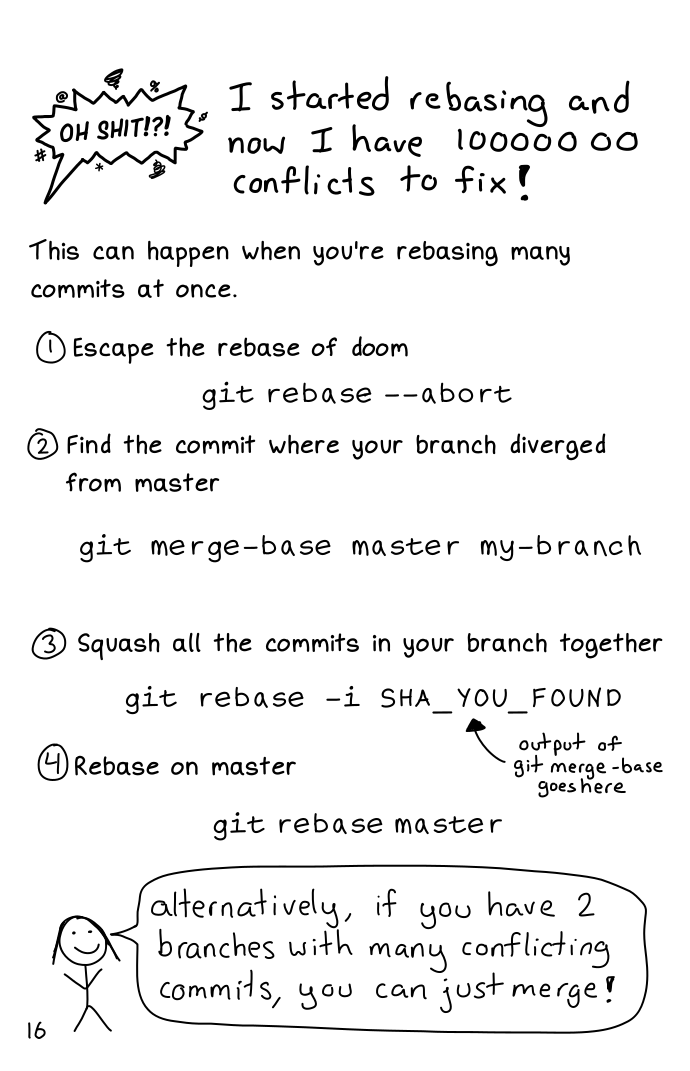 OH SHIT!?!
I started rebasing and
now I have 10000000
conflicts to fix!
This can happen when you're rebasing many
commits at once.
① Escape the rebase of doom
git rebase --abort
② Find the commit where your branch diverged
from master
git merge-base master my-branch
③ Squash all the commits in your branch together
git rebase -i SHA_YOU_FOUND
output of
git merge-base
goes here
④ Rebase on master
git rebase master
alternatively, if you have 2
branches with many conflicting
commits, you can just merge!
16